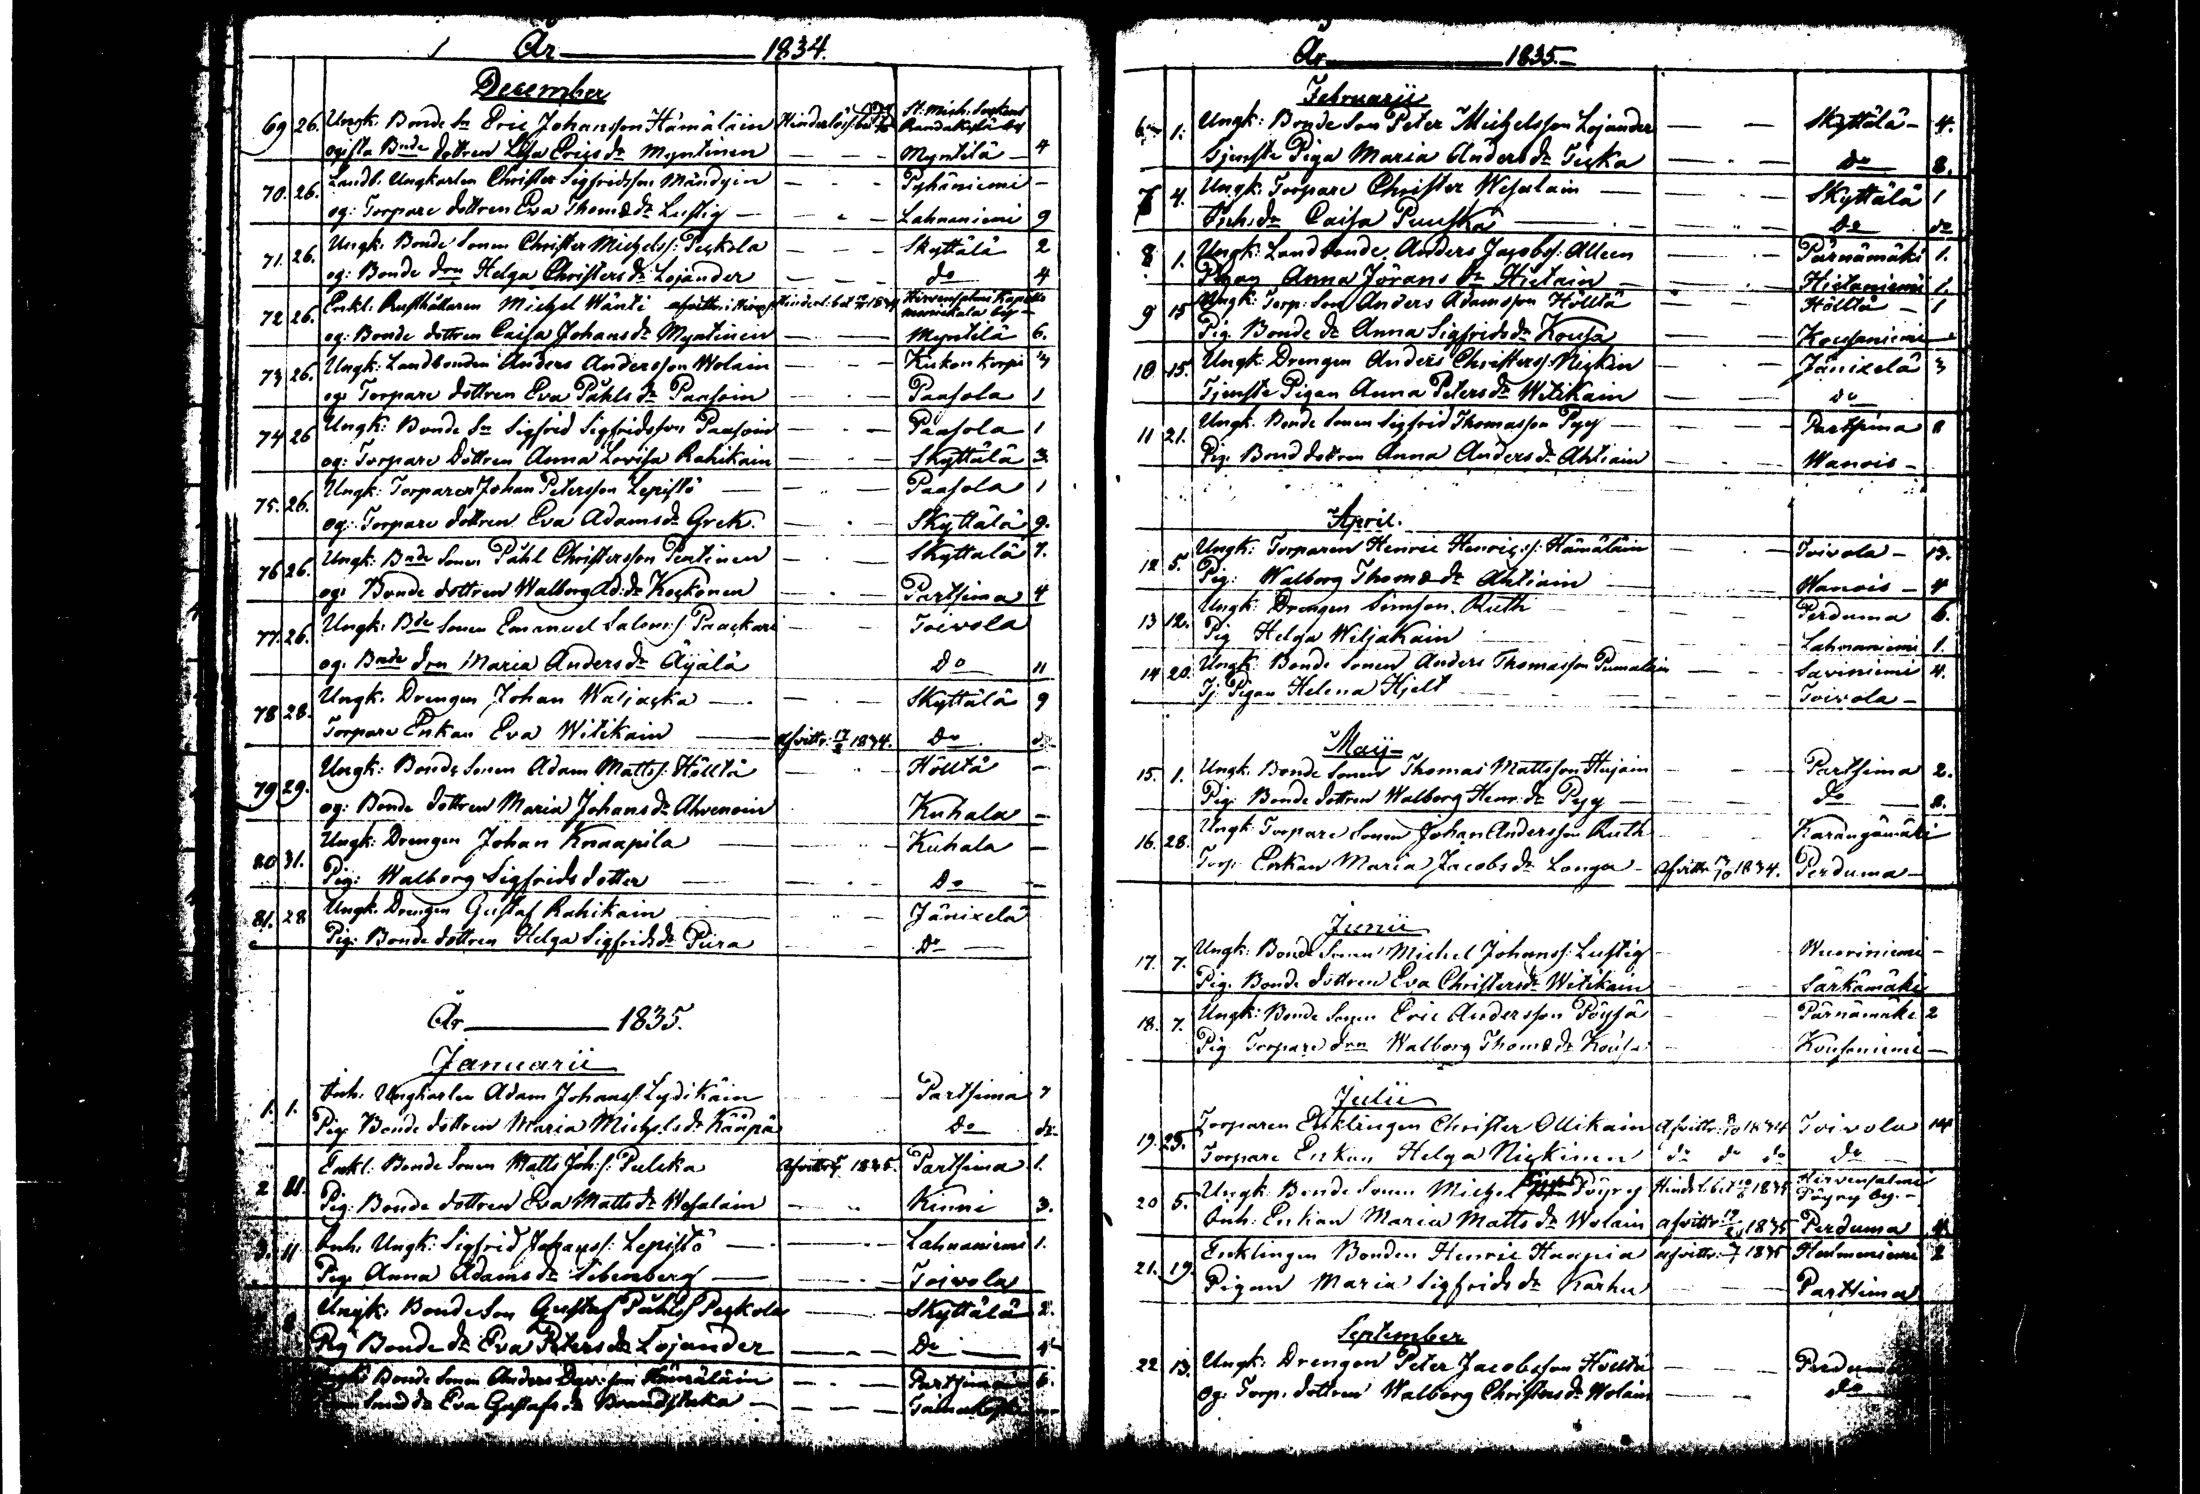 År 1834.
December
69 26. Ungk. Bonde Sn Eric Johansson Hämäläin Hinderlös: bet St: Mich: Sockens
Randakylä by
ogifta Bnde dottren Lisa Erics dr Myntinen — — — Myntilä — 4
70. 26. Landb. Ungkarlen Christer Sigfridsson Mändyin — - - Pyhäniemi -
og: Torpare dottren Eva Thomæ dr Lustig — — - — Lahnaniemi 9
71. 26. Ungk: Bonde Sonen Christer Michels s: Peckola — - — Skyttälä 2
og: Bonde dren Helga Christers dr Lojander — — do 4
72 26. Enkl. Rusthållaren Michel Wänti afvittr: Hinderl: bet 1834 Hirvensalmi Kapell
by —
og: Bonde dottren Caisa Johans dr Myntinen — — — Myntilä 6.
73 26. Ungk: Landbonden Anders Andersson Wolain — - — Kukonkorpi 3
og: Torpare dottren Eva Påhls dr Paasoin — - — Paasola 1
74 26 Ungk: Bonde Sn Sigfrid Sigfridsson Paasoin — - — Paasola 1
og: Torpare Dottren Anna Lovisa Rahikain — - — Skyttälä 3.
75. 26. Ungk: Torparen Johan Petersson Lepistö — — - — Paasola 1
og: Torpare dottren Eva Adams dr Grek. — - — Skyttälä 9.
76 26. Ungk: Bnde Sonen Påhl Christersson Pentinen — - — Skyttälä 7.
og: Bonde dottren Walborg Ad: dr Kockonen — - — Partsima 4
77. 26. Ungk: Bde Sonen Emanuel Salom: s: Paackari — - — Toivola
og. Bnde dren Maria Anders dr Äyälä Do 11
78 28. Ungk. Drengen Johan Waljacka — . — - — Skyttälä 9
Torpare Enkan Eva Witikain — afvittr: 17/2 1834. Do do
79 29. Ungk: Bonde Sonen Adam Matts s: Hölltä — - — Hölltä —
og: Bonde dottren Maria Johans dr Ahvenoin Kuhala —
80 31. Ungk: Drengen Johan Knaapila — — - — Kuhala —
Pig: Walborg Sigfrids dotter — — - — Do —
81. 28 Ungk. Drengen Gustaf Rahikain — - — Jänixelä
Pig: Bonde dottren Helga Sigfrids dr Piira - — Do —
År 1835.
Januarii
1. 1. Inh: Ungkarlen Adam Johans s: Lydikäin Partsima 7
Pig: Bonde dottren Maria Michels dr Kääpä Do do
2 11. Enkl: Bonde Sonen Matts Joh: s: Pulcka afvittr: 1835. Partsima 1.
Pig: Bonde dottren Eva Matts dr Wesalain — - Kinni 3.
3. 11 Inh. Ungk: Sigfrid Johans s: Lepistö — — - — Lahnaniemi 1.
Pig. Anna Adams dr — — - — Toivola
Ungk: Bonde Son Gustaf Påhls s: Peckola — - — Skyttälä 2.
Pig Bonde dr Eva Peters dr Lojander — - — Do — 4
Bonde Sonen Anders Dav: son Hämäläin — - — Partsima 6.
dr Eva Gustafs dr Brandstaka — — - —
År 1835.—
Februarii
6 1. Ungk: Bonde Son Peter Michelsson Lojander — — Skyttälä — 4.
Tjenste Piga Maria Anders dr Ticka — - — do 8.
7 4. Ungk: Torpare Christer Wesalain — — - — Skyttälä 1
Inh: dr Caisa Puuska — — - — do do
8 1. Ungk: Landbonde. Anders Jacobs s: Alleen — - — Pärnämäki 1.
Pigan Anna Jörans dr Hietain — — — - — Hietaniemi 1.
9 15 Ungk: Torp: Son Anders Adamsson Hölltä Hölltä — 1
Pig. Bonde dr Anna Sigfrids dr Kousa — - — Kousaniemi —
10. 15. Ungk: Drengen Anders Christers s: Nickin — - — Jänixelä 3
Tjenste Pigan Anna Peters dr Witikain — — do
11 21. Ungk. Bonde Sonen Sigfrid Thomasson Pyy — — - — Partsima 8
Pig: Bond dottren Anna Anders dr Ahtiain — - — Wanois —
April.
12 5. Ungk: Torparen Henric Henrics s: Hämäläin — - — Toivola — 13.
Pig: Walborg Thomæ dr Ahtiain — Wanois — 4
13 12. Ungk: Drengen Simson. Ruth — - — Perduma 6.
Pig Helga Wiljakain — - — Lahnaniemi 1.
14 20. Ungk: Bonde Sonen Anders Thomasson Pumalain — — Saviniemi 4.
Tj: Pigan Helena Hjelt — - — Toivola —
Maij —
15. 1. Ungk: Bonde Sonen Thomas Mattsson Hujain — — Partsima 2.
Pig. Bonde dottren Walborg Henr: dr Pyy — — - — do 8.
16. 28. Ungk: Torpare Sonen Johan Andersson Ruth — — Karangamäki
Torp: Enkan Maria Jacobs dr Longa — afvittr: 13/10 1834. Perduma —
Junii
17. 7. Ungk: Bonde Sonen Michel Johans s: Lustig — Wuoriniemi —
Pig. Bonde dottren Eva Christers dr Witikain — - — Särkämäki
18. 7. Ungk: Bonde Sonen Eric Andersson Pöysä Pärnämäki 2
Pig Torpare dren Walborg Thomæ dr Kousa Kousaniemi —
Julii
19. 23. Torparen Enklingen Christer Ollikain afvittr: 1834 Toivola 14
Torpare Enkan Helga Nickinen do do do do
20 5. Ungk: Bonde Sonen Michel Pöyry Hinderl: bet 1835 Hirvensalmi
Pöyry by. —
Inh: Enkan Maria Matts dr Wolain afvittr: 1835 Perduma 4
21. 19. Enklingen Bonden Henric Haapia afvittr: 1835 2
Pigan Maria Sigfrids dr Karhu Partsima
September
22 13. Ungk: Drengen Peter Jacobsson Hölltä — — — Perduma
og: Torp: dottren Walborg Christers dr Wolain — — do